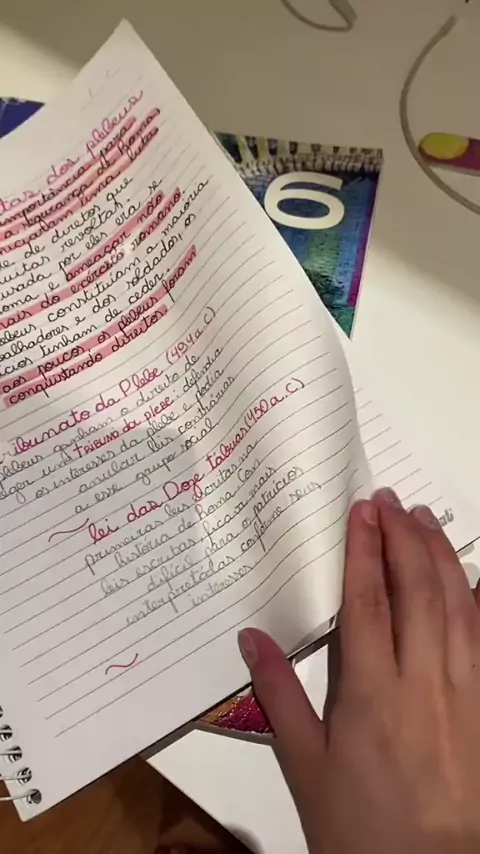 tas dos plebeus
importância para
a segurança de Roma
iniciaram uma luta
de direitos que
muitas revoltas,
usado por eles era se
oma e ameaçar não
mais do exército romano.
plebeus constituíam a maioria
balhadores e dos soldados, os
ícios tinham de ceder.
aos poucos os plebeus foram
conquistando direitos.
ribunato da Plebe (494 a.C)
plebeus ganham o direito de
eger um TRIBUNO DA PLEBE, defendia
os interesses da plebe e podia
anular leis contrárias
a esse grupo social
lei das Doze tábuas (450 a.C)
primeiras leis escritas na
história de Roma. Com
leis escritas ficava mais
difícil para o patrícios
interpretadas conforme seus
interesses.
6